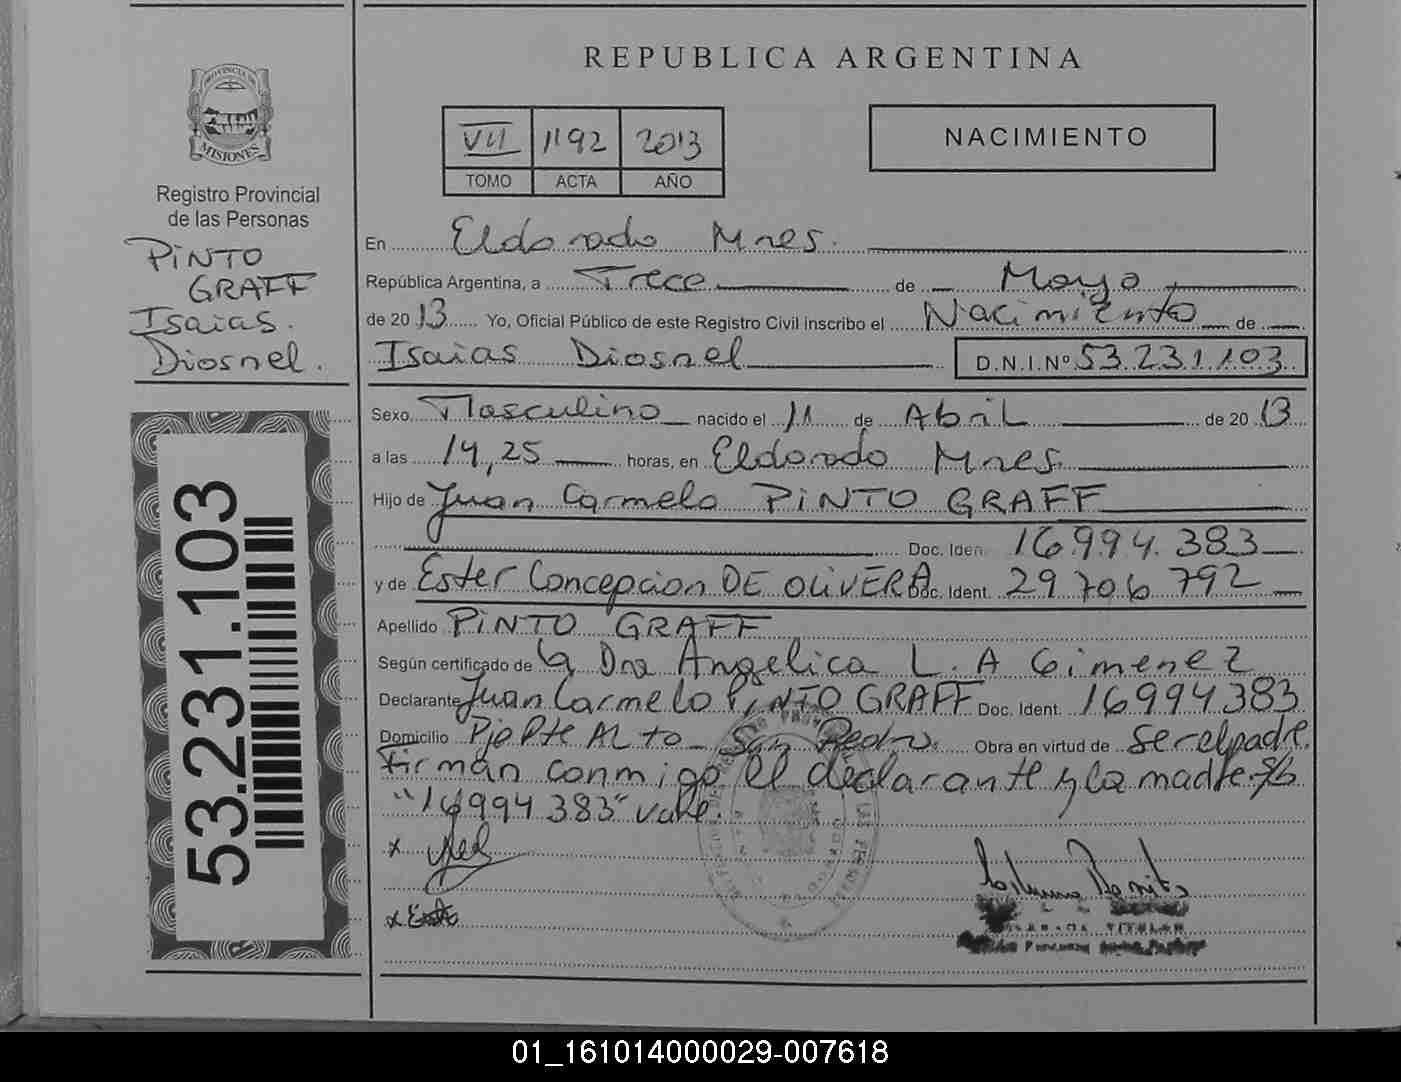 REPUBLICA ARGENTINA
PROVINCIA DE
MISIONES
Registro Provincial
de las Personas
PINTO
GRAFF
Isaias.
Diosnel.
53.231.103
VII 1192 2013
TOMO ACTA AÑO
NACIMIENTO
En Eldorado Mnes.
República Argentina, a Trece de Mayo
de 2013 Yo, Oficial Público de este Registro Civil inscribo el Nacimiento de
Isaias Diosnel D.N.I.Nº 53.231.103
Sexo Masculino nacido el 11 de Abril de 2013
a las 14,25 horas, en Eldorado Mnes.
Hijo de Juan Carmelo PINTO GRAFF
Doc. Iden. 16.994.383
y de Ester Concepcion DE OLIVERA Doc. Ident. 29.706.792
Apellido PINTO GRAFF
Según certificado de la Dra Angelica L. A Gimenez
Declarante Juan Carmelo PINTO GRAFF Doc. Ident. 16994383
Domicilio Pje Pte Alto San Pedro. Obra en virtud de ser el padre.
Firman conmigo el declarante y la madre. S/b
"16994383" vale.
x
x
TITULAR
01_161014000029-007618